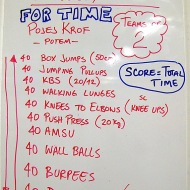 FOR TIME
TEAMS OF
POJES KROF
- POTEM -
40 BOX JUMPS (50cm
40 JUMPING PULLUPS
40 KBS (20/12)
SCORE = TOTAL
TIME
40 WALKING LUNGES
SC
40 KNEES TO ELBOWS (KNEE UPS)
40 PUSH PRESS (20kg)
40 AMSU
40 WALL BALLS
40 BURPEES
40